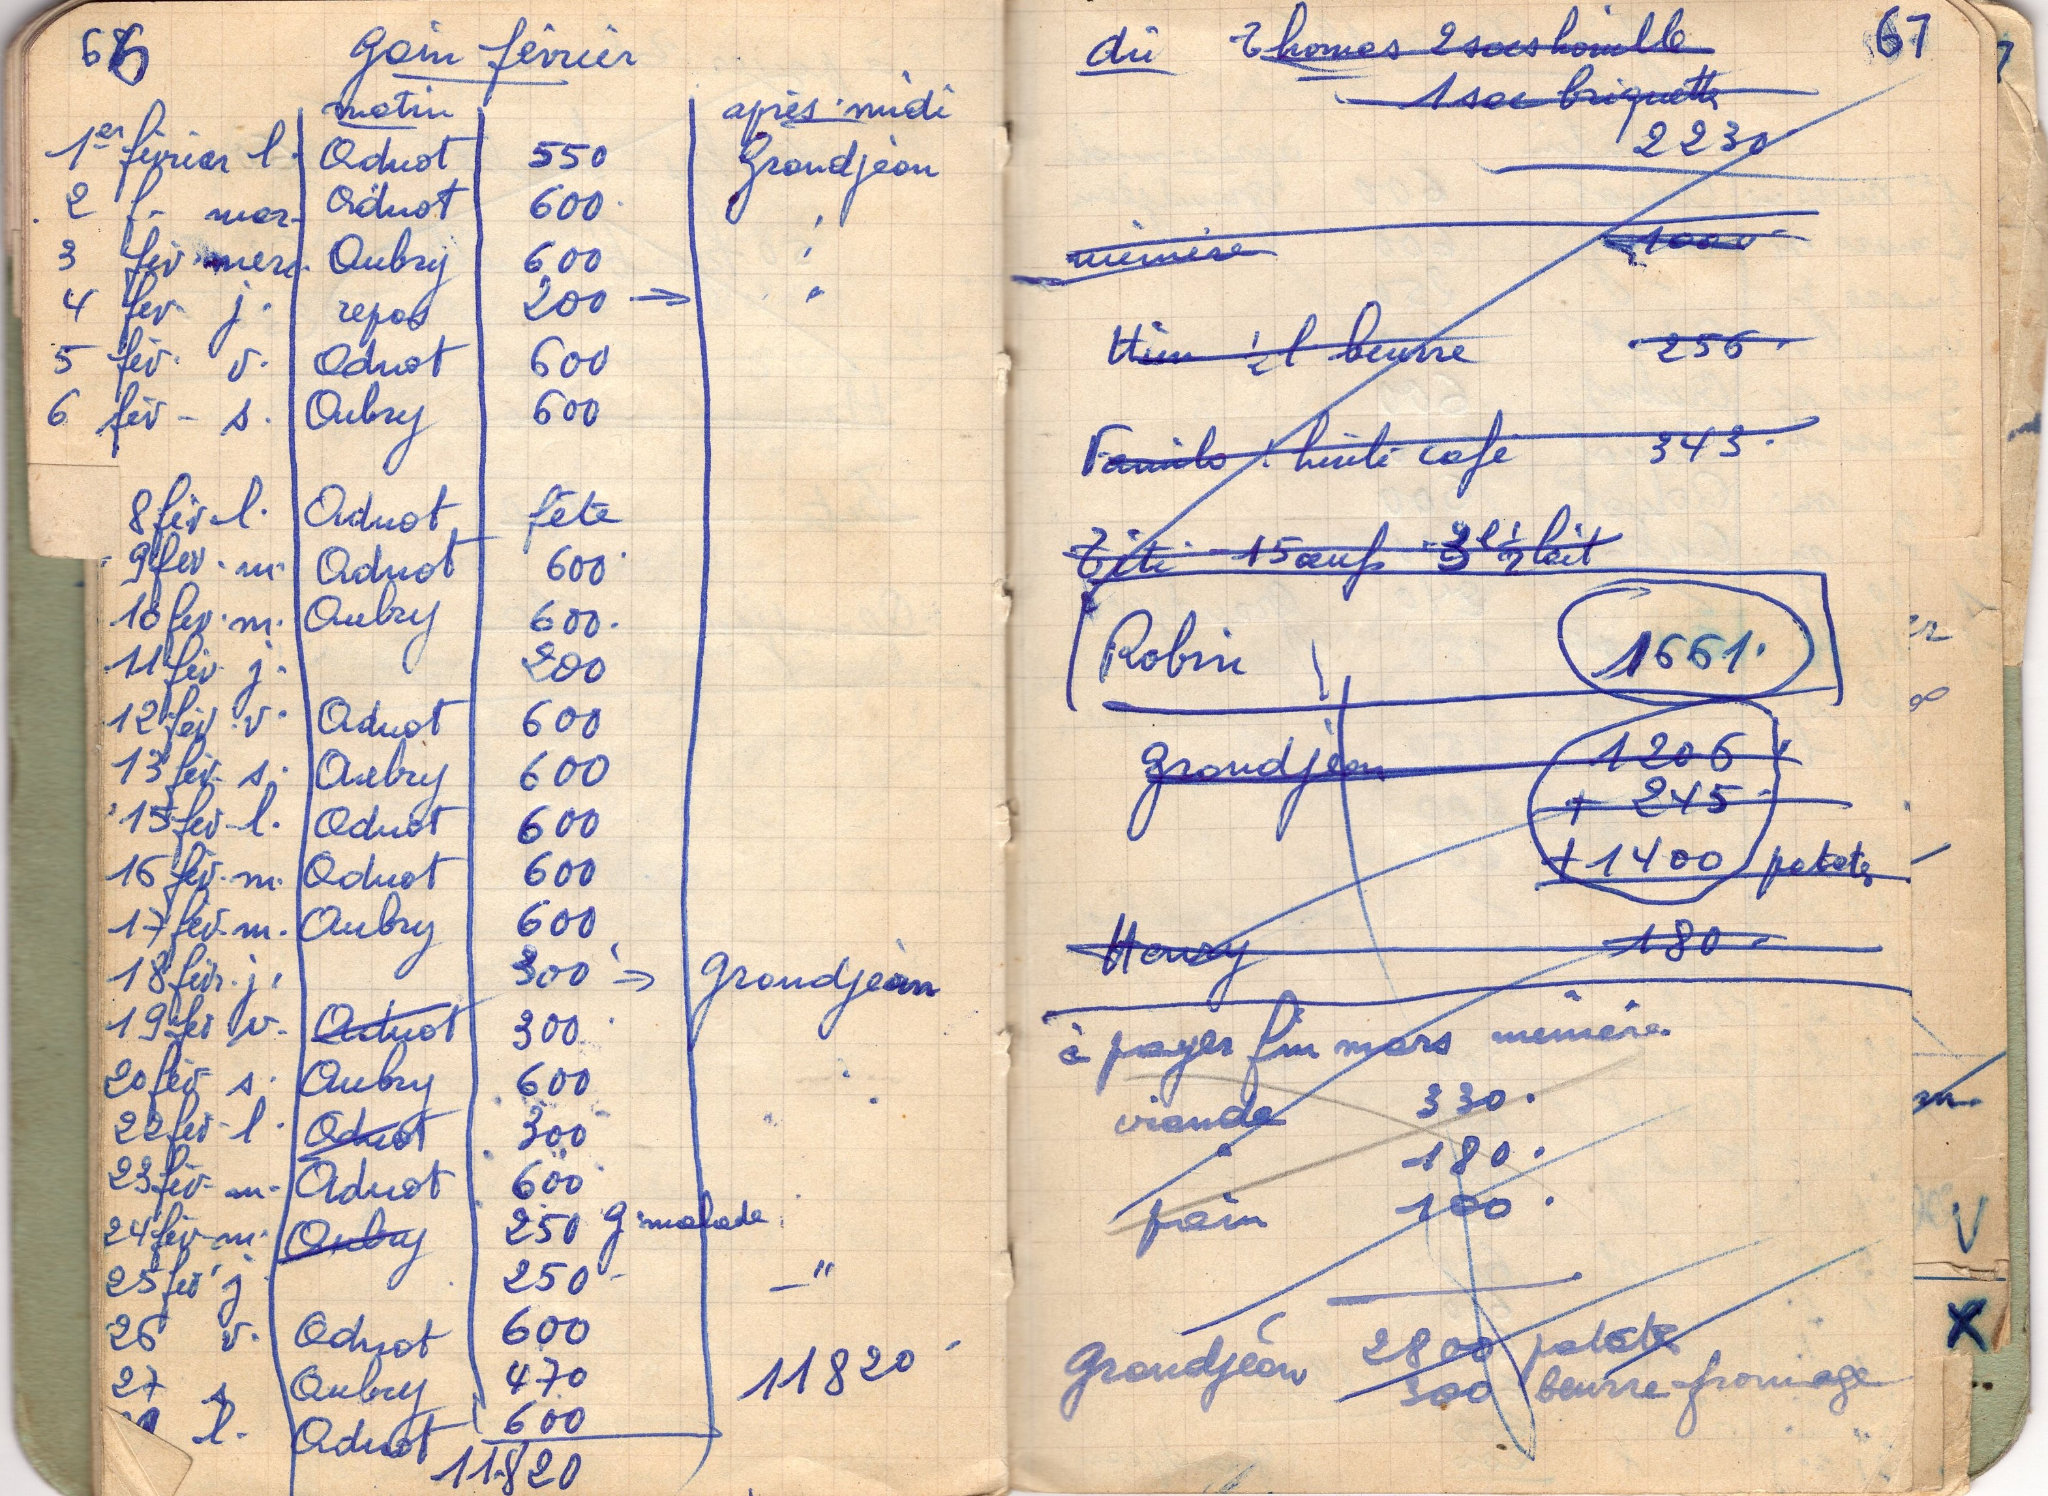 66
gain février
matin après-midi
1er février l. Adnot 550 Grandjean
2 f. mar. Adnot 600 "
3 fév merc. Aubry 600 "
4 fev. j. repos 200 → "
5 fév. v. Adnot 600
6 fév - s. Aubry 600
8 fév l. Adnot fête
9 fev. m. Adnot 600
10 fev. m. Aubry 600.
11 fév j. 200
12 fév. v. Adnot 600
13 fév. s. Aubry 600
15 fév l. Adnot 600
16 fév. m. Adnot 600
17 fév. m. Aubry 600
18 fév. j. 300 → Grandjean
19 fev v. Adnot 300
20 fév s. Aubry 600 "
22 fév l. Adnot 300 "
23 fév m. Adnot 600
24 fév m. Aubry 250 G malade
25 fev j 250 - "
26 v. Adnot 600
27 s Aubry 470 11820
l. Adnot 600
11820
67
dû Thomas 2 sacs houille
1 sac briquette
2230
mémère 1000
½ l beurre 256.
Familo huile café 343.
Titi 15 œufs 3l ½ lait
Robin 1661.
Grandjean 1206
+ 245
+ 1400 patates
Henry 180
à payer fin mars mémère
viande 330.
" 180.
pain 100.
Grandjean 2800 patate
300 beurre-fromage
V
X